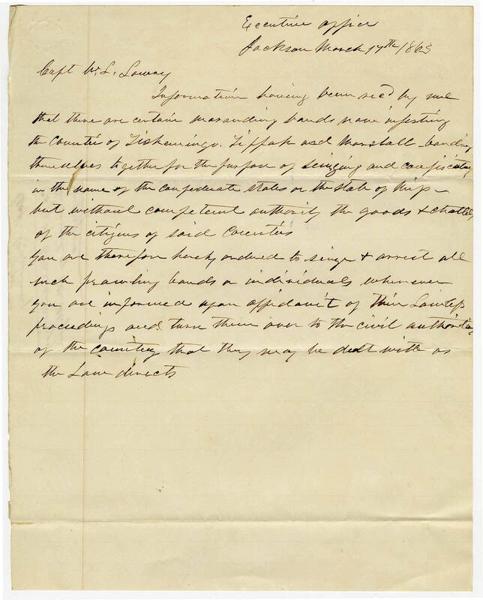 Executive office
Jackson March 17th 1863
Capt W. L. Lowry
Information having been recd by me
that there are certain marauding bands now infesting
the counties of Tishomingo, Tippah and Marshall banding
themselves together for the purpose of seizing and confiscating
in the name of the confederate states or the state of Miss -
but without competent authority the goods & chattles
of the citizens of said Counties
you are therefore hereby ordered to seize & arrest all
such prowling bands or individuals whenever
you are informed upon affidavit of their Lawless
proceedings and turn them over to the civil authorities
of the country that they may be dealt with as
the Law directs